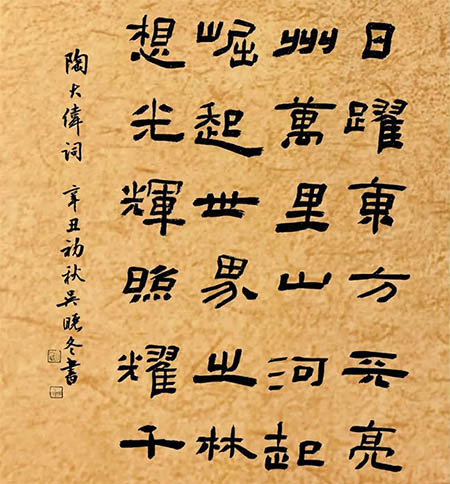 日躍東方亮
州萬里山河起
崛起世界之林
想光輝照耀千
陶大偉詞 辛丑初秋吳曉冬書